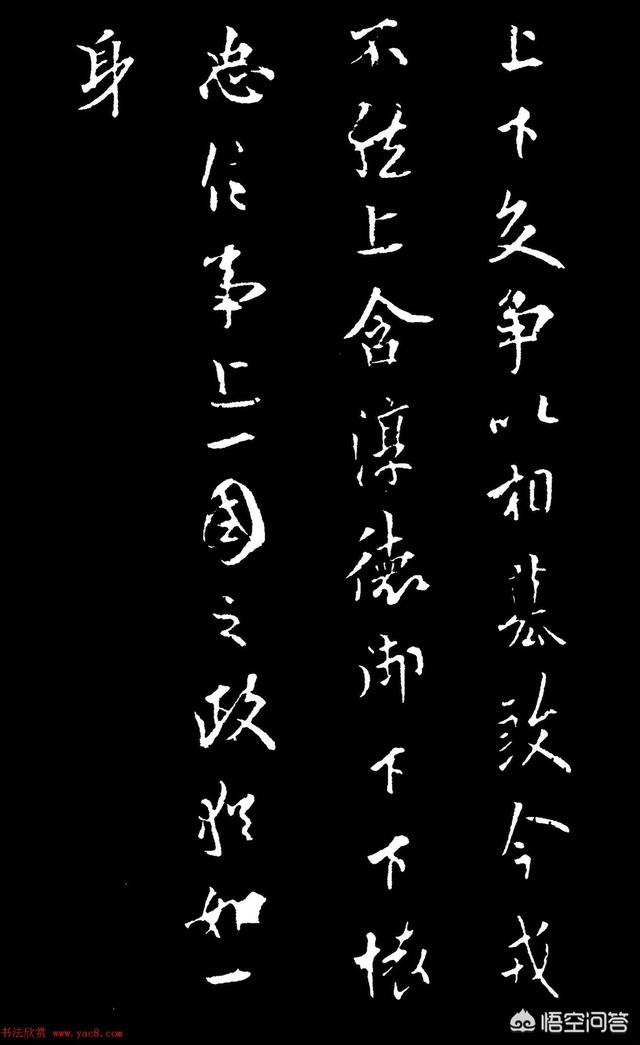 上下交争以相今戎
不然上含淳德御下下懷
忠信事上一國之政猶如一
身
书法欣赏 www.yac8.com
悟空问答